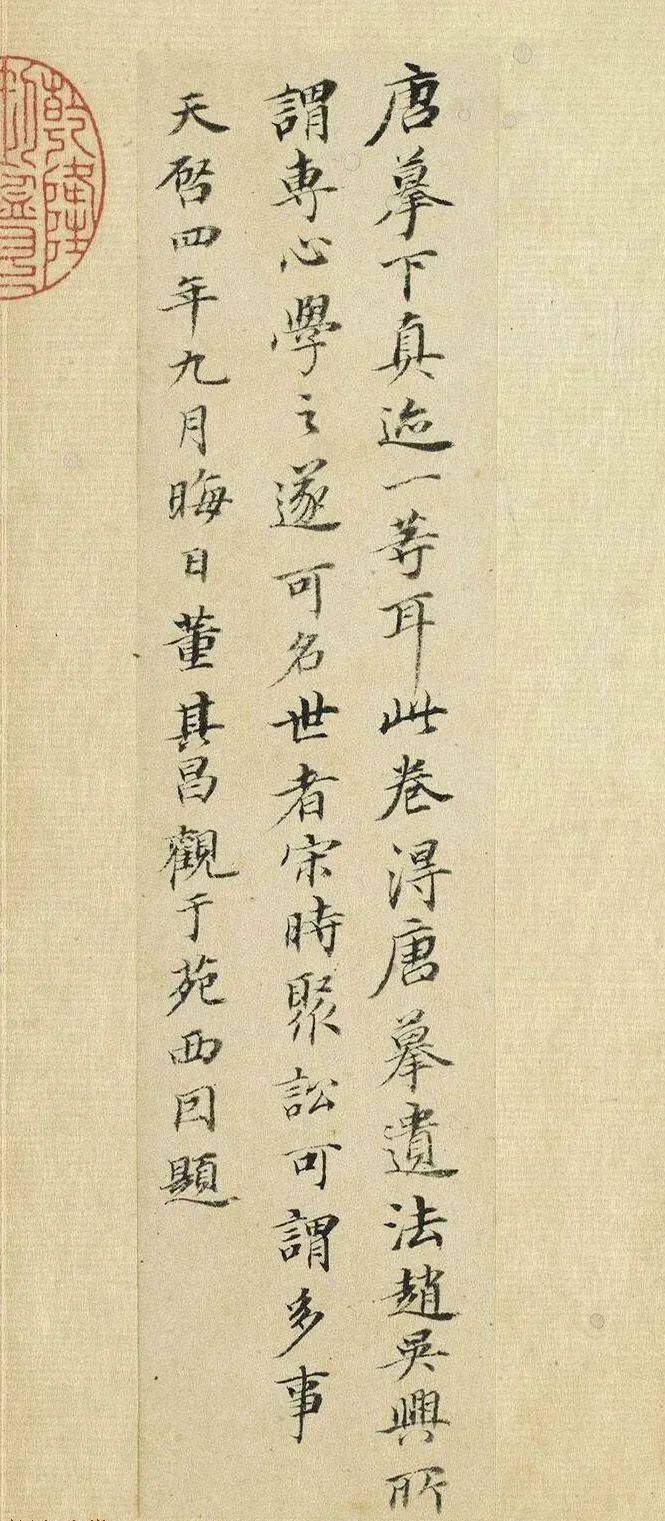 唐摹下真迹一等耳此卷得唐摹遺法趙吳興所
謂專心學之遂可名世者宋時聚訟可謂多事
天啓四年九月晦日董其昌觀于苑西因題
乾隆